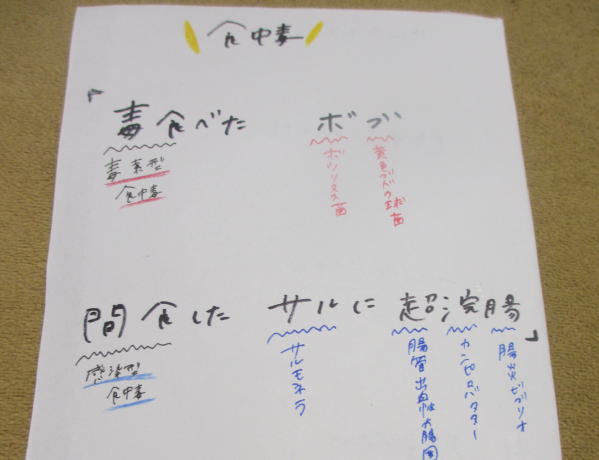 食中毒
「毒食べた ボブ
毒素型
食中毒
ボツリヌス菌
黄色ブドウ球菌
間食した サルに 超浣腸」
感染型
食中毒
サルモネラ
腸管出血性大腸菌
カンピロバクター
腸炎ビブリオ